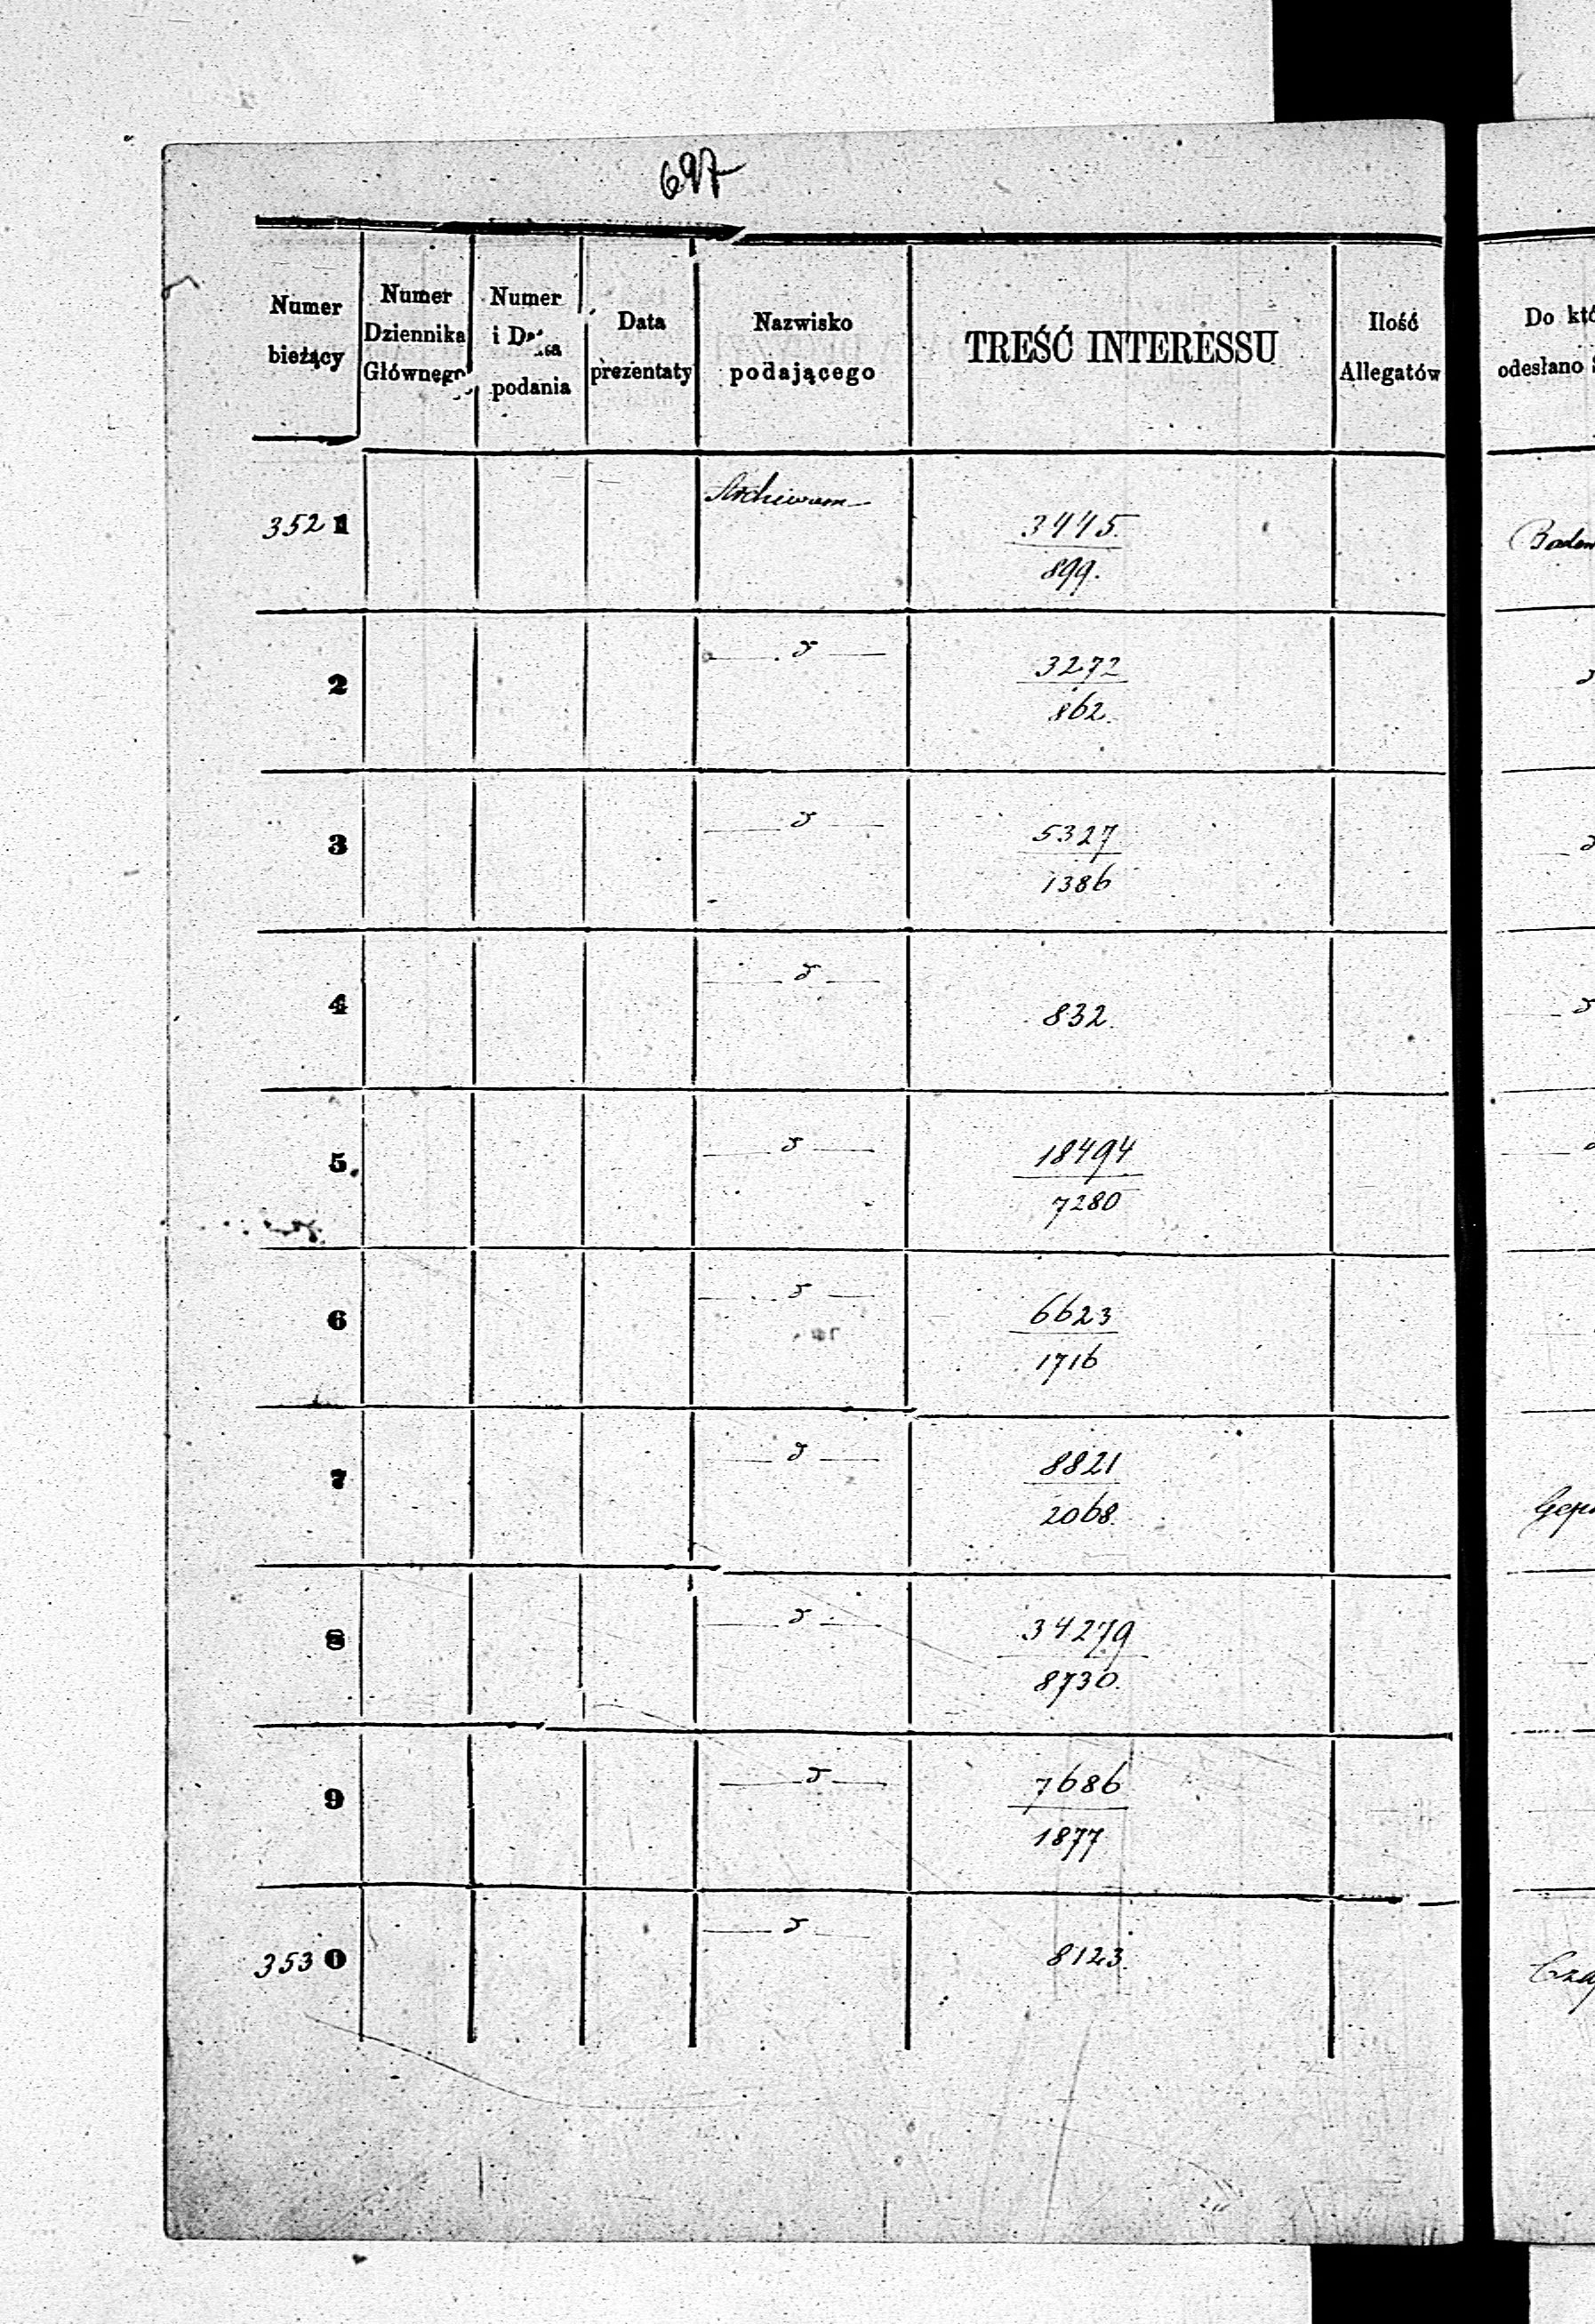 697
Numer bieżący
Numer Dziennika Głównego
Numer i Data podania
Data prezentaty
Nazwisko podającego
TREŚĆ INTERESSU
Ilość Allegatów
Do któ
odesłano
3521
Archiwum
3445.
899.
2
3272
862.
3
5327
1386
4
832.
5
18494
7280
6
6623
1716
7
8821
2068.
8
34279
8730.
9
7686
1877
3530
8123.